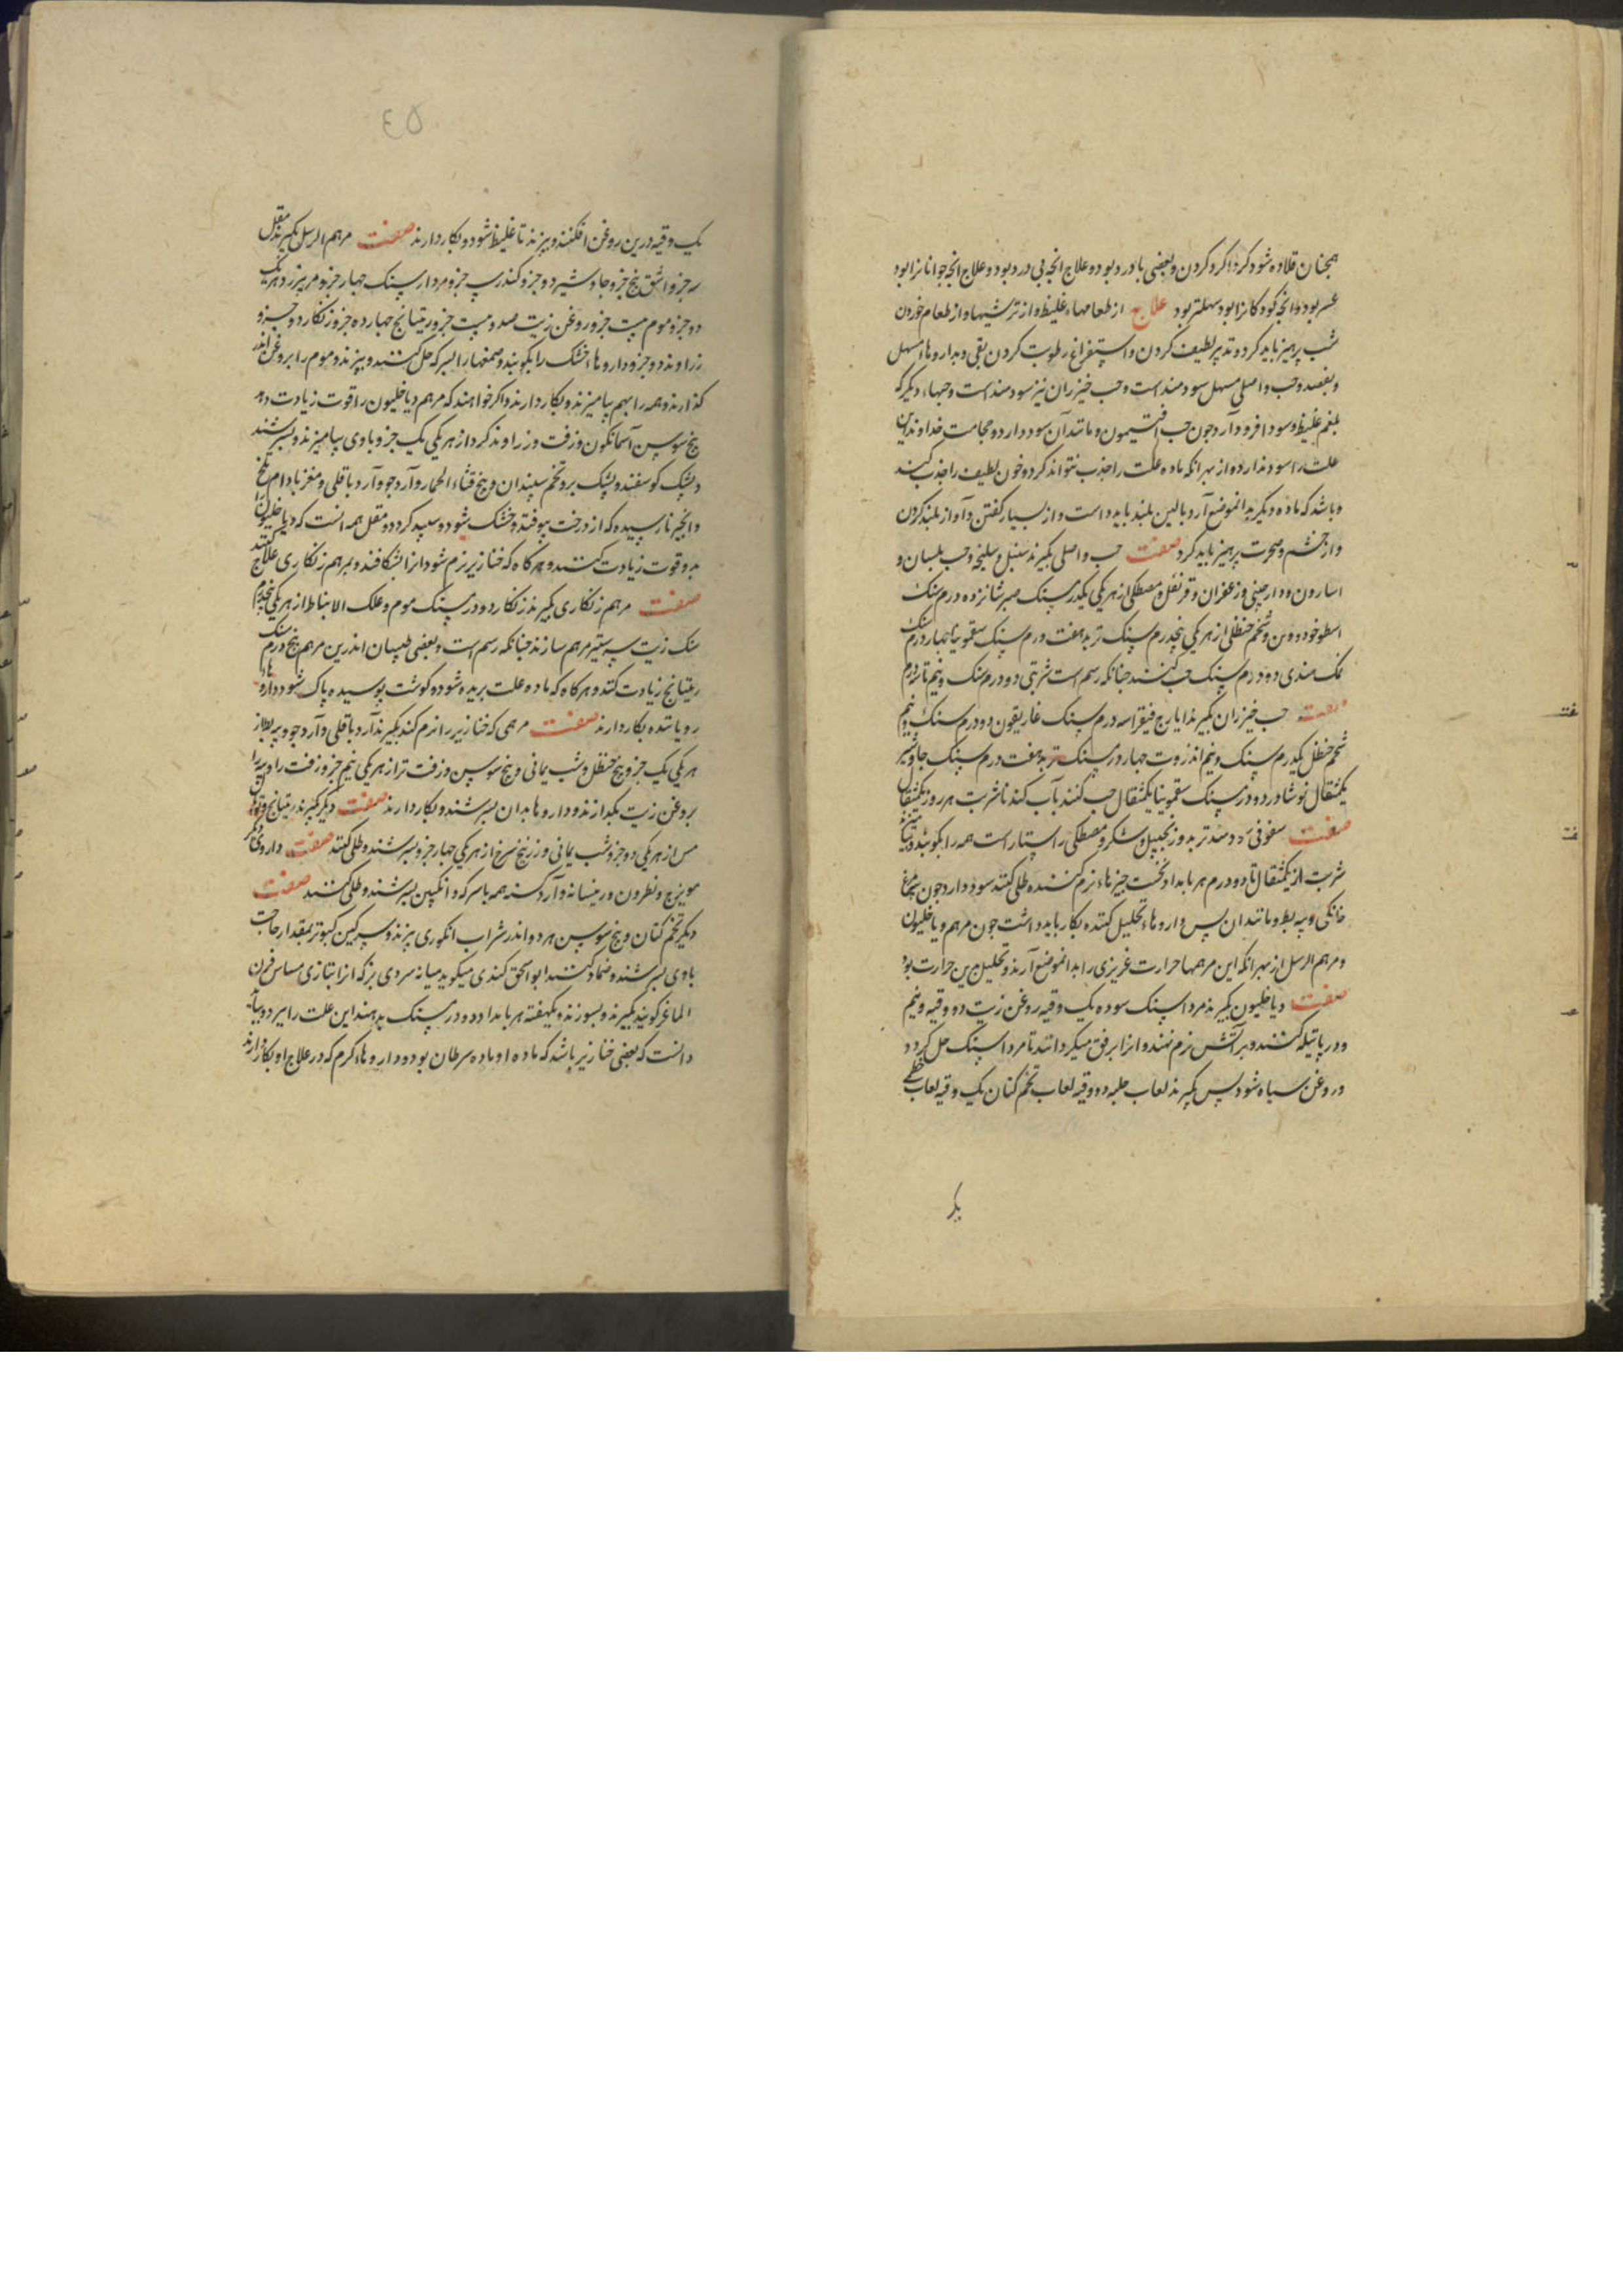 همچنان قلاده شود کرد اکرد کردن و بعضی با درد بود و علاج انچه بی درد بود و علاج انچه جوانانرا بود
عسر بود و انچه کودکانرا بود سهلتر بود علاج از طعامهاء غلیظ و از ترشیها و از طعام خوردن
شب پرهیز باید کرد و تدبیر لطیف کردن و استفراغ رطوبت کردن بقی و بداروها مسهل
و بفصد و حب و اصلی مسهل سودمند است و حب خیزران نیز سودمند است و حبهاء دیگر که
بلغم غلیظ و سودا فرود آرد چون حب افتیمون و مانند آن سود دارد و حجامت خداوند این
علت را سود ندارد از بهر انکه ماده علت را جذب نتواند کرد و خون لطیف را جذب کند
و باشد که ماده دیگر بدانموضع آرد بالین بلند باید داشت و از بسیار گفتن و آواز بلند کردن
و از خشم و ضجرت پرهیز باید کرد صفت حب واصلی بگیرند سنبل و سلیخه و حب بلسان و
اسارون و دارچینی و زعفران و قرنفل و مصطکی از هریکی یکدرم سنک صبر شانزده درم سنک
اسطوخودوس و شحم حنظل از هریکی پنجدرم سنک تربد هفت درم سنک سقمونیا چهار درم سنک
نمک هندی دو درم سنک حب کنند چنانکه رسم است شربتی دو درم سنک و نیم تا سه درم
صفت حب خیزران بگیرند ایارج فیقرا سه درم سنک غاریقون دو درم سنک و نیم
شحم حنظل یکدرم سنک و نیم انزروت چهار درم سنک تربد هفت درم سنک جاوشیر
یکمثقال نوشادر دو درم سنک سقمونیا یکمثقال حب کنند بآب کندنا شربت هر روز یکمثقال
صفت سفوفی سودمند تربد و زنجبیل و شکر و مصطکی راستا راست همه را بکوبند و بیامیزند
شربت از یکمثقال تا دو درم هر بامداد و نخست چیزهاء نرم کننده طلی کنند سود دارد چون پیه مرغ
خانگی و پیه بط و مانند ان پس داروهاء تحلیل کننده بکار باید داشت چون مرهم دیاخلیون
و مرهم الرسل از بهر انکه این مرهمها حرارت غریزی را بدانموضع آرند و تحلیل بدین حرارت بود
صفت دیاخلیون بگیرند مرداسنک سوده یک وقیه روغن زیت دو وقیه و نیم
و در پاتیله کنند و بر آتش نرم نهند و انرا برفق میگردانند تا مرداسنک حل گردد
و روغن سیاه شود پس بگیرند لعاب حلبه دو وقیه لعاب تخم کتان یک وقیه لعاب خطمی
یک
٤٥
یک وقیه درین روغن افکنند و بپزند تا غلیظ شود و بکار دارند صفت مرهم الرسل بگیرند مقل
سه جزو اشق پنج جزو جاوشیر دو جزو کندر سه جزو مردارسنک چهار جزو مر بیرزد هریک
دو جزو موم بیست جزو روغن زیت صد و بیست جزو ریتیانج چهارده جزو زنکار دو جزو
زراوند دو جزو داروها خشک را بکوبند و صمغها را بسرکه حل کنند و بپزند و موم را بروغن اندر
گذارند و همه را بهم بیامیزند و بکار دارند و اکر خواهند که مرهم دیاخلیون را قوت زیادت دهد
بیخ سوسن آسمانکون و زفت و زراوند کرد از هریکی یک جزو با وی بیامیزند و بسرشند
و پشک گوسفند و پشک بز و تخم سپندان و بیخ قثاء الحمار و آرد جو و آرد باقلی و مغز بادام تلخ
و انجیر نارسیده که از درخت بیوفتد و خشک شود و سپید کردد و مقل همه انست که دیاخلیون را
بدو قوت زیادت کنند و هر کاه که خنازیر نرم شود انرا بشکافند و بمرهم زنکاری علاج کنند
صفت مرهم زنکاری بگیرند زنکار دو درم سنک موم و علک الانباط از هریکی پنجدرم
سنک زیت سه ستیر مرهم سازند چنانکه رسم است و بعضی طبیبان اندرین مرهم پنج درم سنک
ریتیانج زیادت کنند و هر کاه که ماده علت بریده شود و گوشت پوسیده پاک شود داروها
رویاننده بکار دارند صفت مرهمی که خنازیر را نرم کند بگیرند آرد باقلی و آرد جو و پیه بط از
هریکی یک جزو بیخ حنظل و شب یمانی و بیخ سوسن و زفت تر از هریکی نیم جزو زفت را و پیه را
بروغن زیت بگدازند و داروها بدان بسرشند و بکار دارند صفت دیگر بگیرند ریتیانج و توبال
مس از هریکی دو جزو شب یمانی و زرنیخ سرخ از هریکی چهار جزو بسرشند و طلی کنند صفت داروی دیگر
مویزج و نطرون و ریتیانه و آرد کرسنه همه با سرکه و انگبین بسرشند و طلی کنند صفت
دیگر تخم کتان و بیخ سوسن هر دو اندر شراب انگوری بپزند و سرکین کبوتر بمقدار حاجت
با وی بسرشند و ضماد کنند ابو اسحق کندی میگوید میانه سردی بز که انرا بتازی مساس قرن
الماعز گویند بگیرند و بسوزند و یکهفته هر بامداد دو درم سنک بدهند این علت را ببرد و بباید
دانست که بعضی خنازیر باشد که ماده او ماده سرطان بود و داروهاء کرم که در علاج او بکار دارند